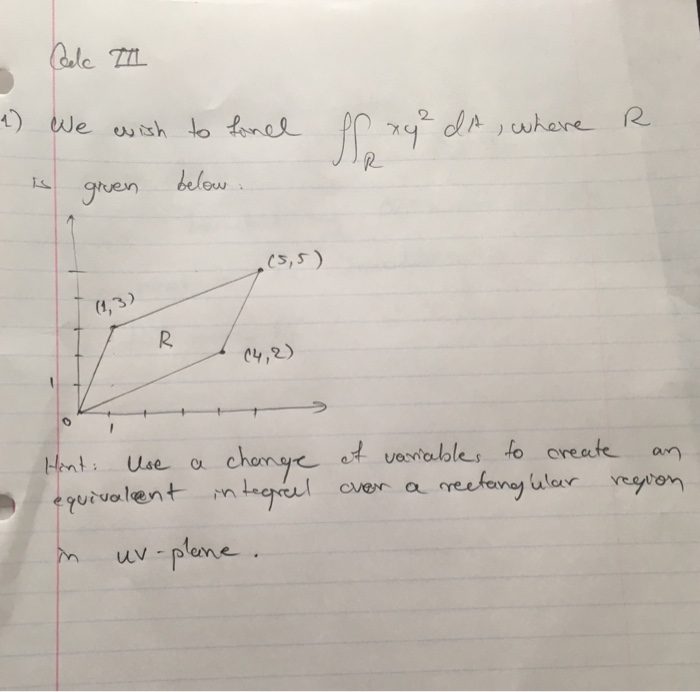 Calc III
1) We wish to find ∬_R xy² dA, where R
is given below.
(5,5)
(1,3)
R
(4,2)
1
0
1
Hint: Use a change of variables to create an
equivalent integral over a rectangular region
in uv-plane.